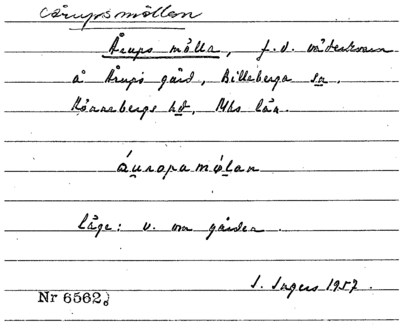 Årupsmöllan
Årups mölla, f.d. väderkvarn
å Årups gård, Billeberga sn,
Rönnebergs hd, Mhs län.
áuropamǿlan
läge: v. om gården.
S. Ingers 1957.
Nr 6562